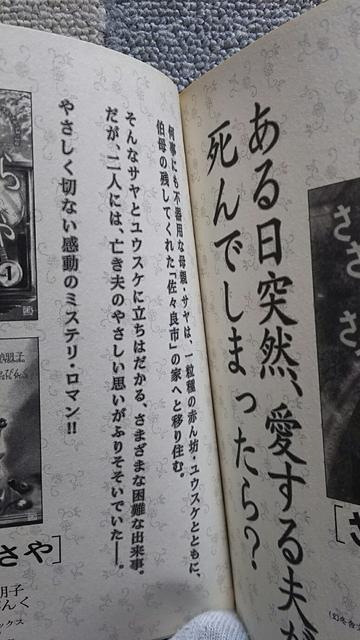 ある日突然、愛する夫が
死んでしまったら?
何事にも不器用な母親・サヤは、一粒種の赤ん坊・ユウスケとともに、
伯母の残してくれた「佐々良市」の家へと移り住む。
そんなサヤとユウスケに立ちはだかる、さまざまな困難な出来事。
だが、二人には、亡き夫のやさしい思いがふりそそいでいた――。
やさしく切ない感動のミステリ・ロマン!!
さや]
朋子
んく
ックス